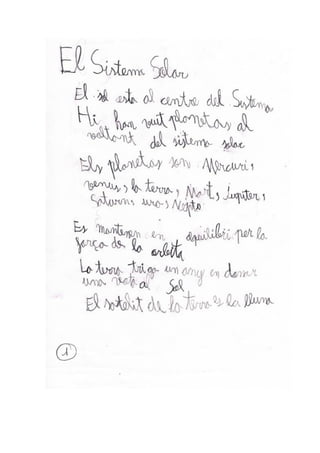 El Sistema Solar
El sol esta al centre del Sistema
Hi han vuit planetas al
voltant del sistema solar
Els planetas son Mercuri,
venus, la terra, Mart, Jupiter,
Saturn, 
Es mantenen en equilibri per la
força de la orbita
La terra triga un any en donar
una volta al Sol
El satelit de la terra es la lluna
1